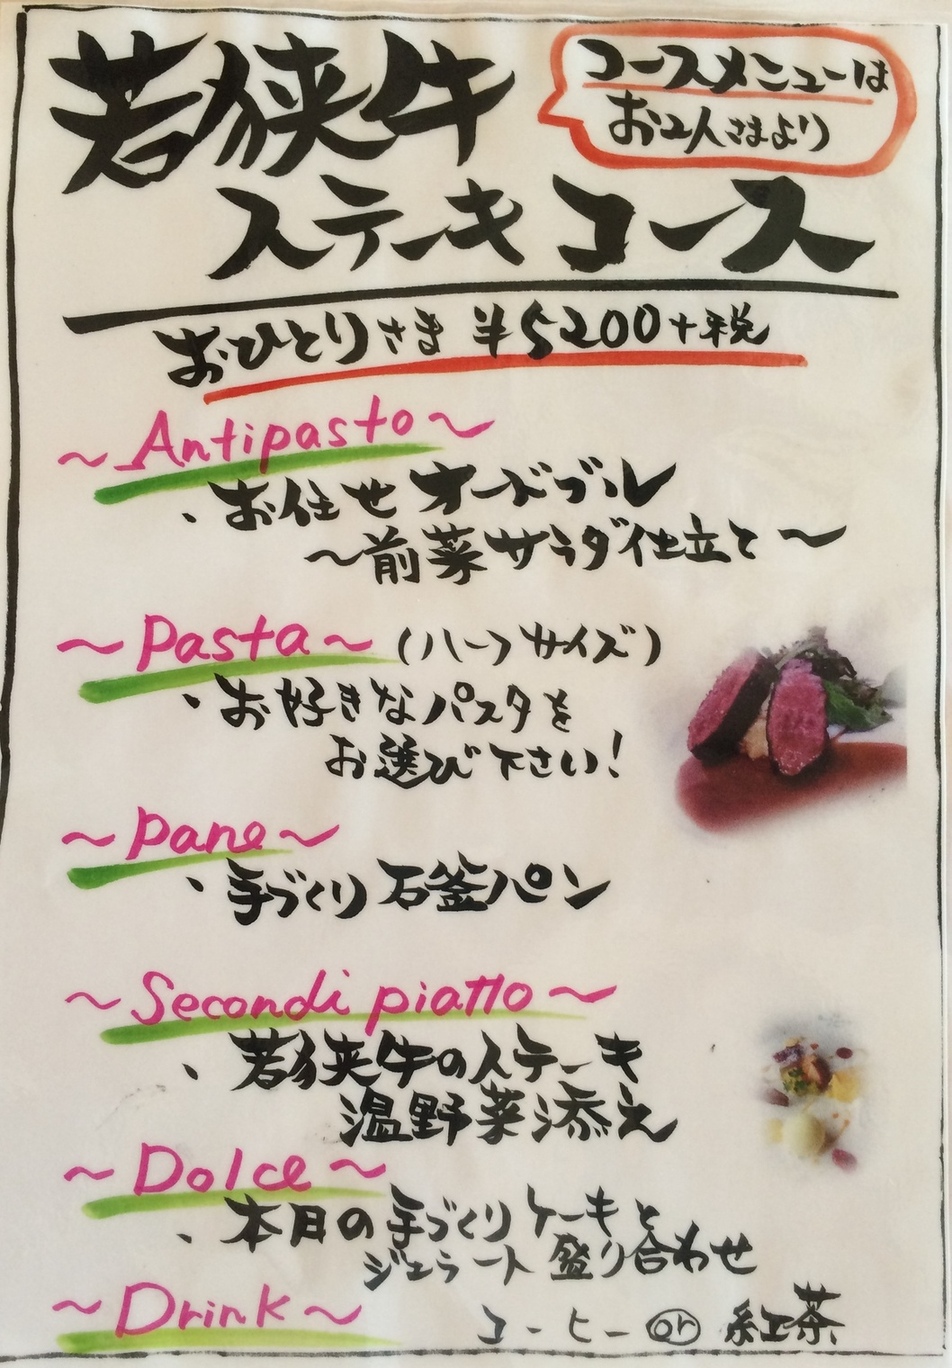 若狭牛
コースメニューは
お2人さまより
ステーキコース
おひとりさま ¥5200+税
~Antipasto~
・お任せオードブル
~前菜サラダ仕立て~
~Pasta~(ハーフサイズ)
・お好きなパスタを
お選び下さい!
~Pane~
・手づくり石釜パン
~Secondi piatto~
・若狭牛のステーキ
温野菜添え
~Dolce~
・本日の手づくりケーキと
ジェラート盛り合わせ
~Drink~ コーヒー or 紅茶